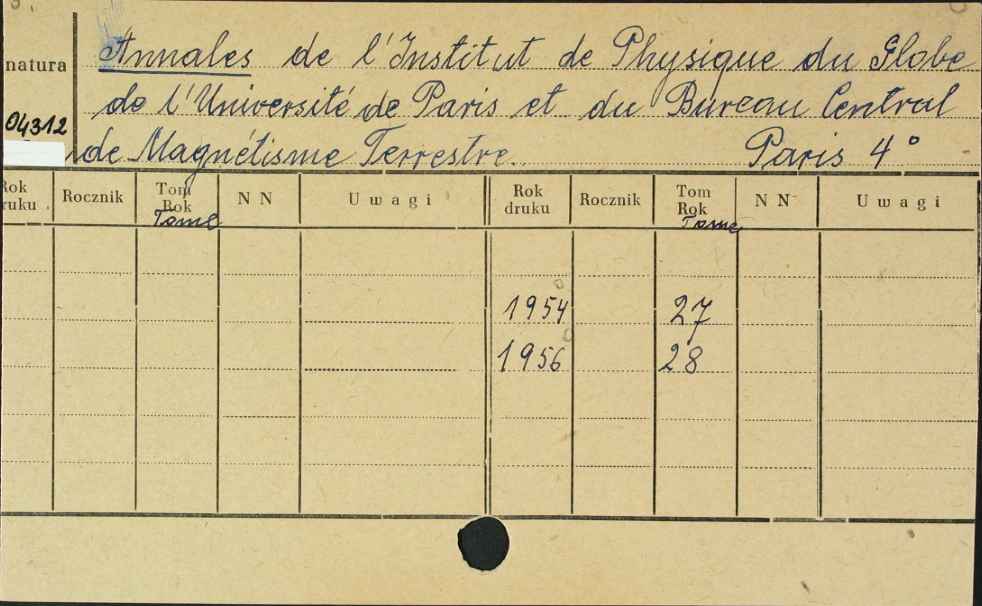 natura
Annales de l'Institut de Physique du Globe
de l'Université de Paris et du Bureau Central
04312
de Magnétisme Terrestre. Paris 4°
Rok druku Rocznik Tom Rok NN Uwagi Rok druku Rocznik Tom Rok NN Uwagi
Tome Tome
1954 27
1956 28